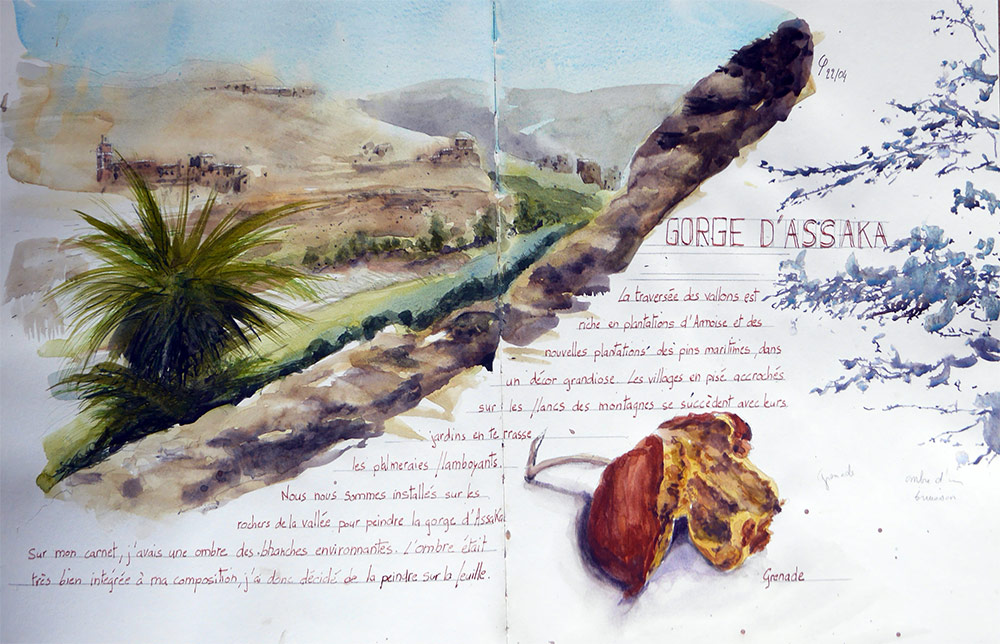 22/04
GORGE D'ASSAKA
La traversée des vallons est
riche en plantations d'Armoise et des
nouvelles plantations des pins maritimes, dans
un décor grandiose. Les villages en pisé accrochés
sur les flancs des montagnes se succèdent avec leurs
jardins en terrasse
les palmeraies flamboyants.
Nous nous sommes installés sur les
rochers de la vallée pour peindre la gorge d'Assaka
Sur mon carnet, j'avais une ombre des branches environnantes. L'ombre était
très bien intégrée à ma composition, j'ai donc décidé de la peindre sur la feuille.
Grenade
ombre d'un